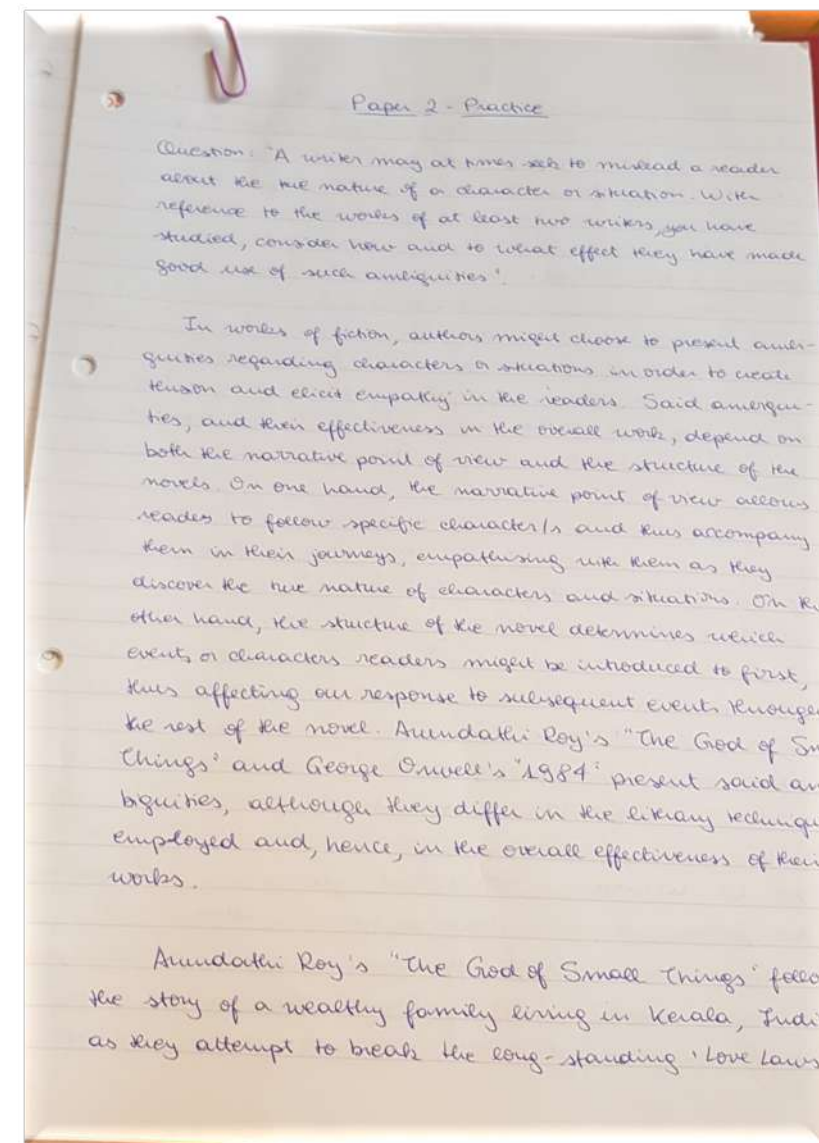 Paper 2 - Practice
Question: "A writer may at times seek to mislead a reader
about the true nature of a character or situation. With
reference to the works of at least two writers, you have
studied, consider how and to what effect they have made
good use of such ambiguities".
In works of fiction, authors might choose to present ambi-
guities regarding characters or situations in order to create
tension and elicit empathy in the readers. Said ambigui-
ties, and their effectiveness in the overall work, depend on
both the narrative point of view and the structure of the
novels. On one hand, the narrative point of view allows
readers to follow specific character/s and thus accompany
them in their journeys, empathising with them as they
discover the true nature of characters and situations. On the
other hand, the structure of the novel determines which
events or characters readers might be introduced to first,
thus affecting our response to subsequent events through
the rest of the novel. Arundathi Roy's "The God of Sm
Things" and George Orwell's "1984" present said am
biguities, although they differ in the literary techniqu
employed and, hence, in the overall effectiveness of their
works.
Arundathi Roy's "The God of Small Things" follo
the story of a wealthy family living in Kerala, Indi
as they attempt to break the long-standing 'Love Laws